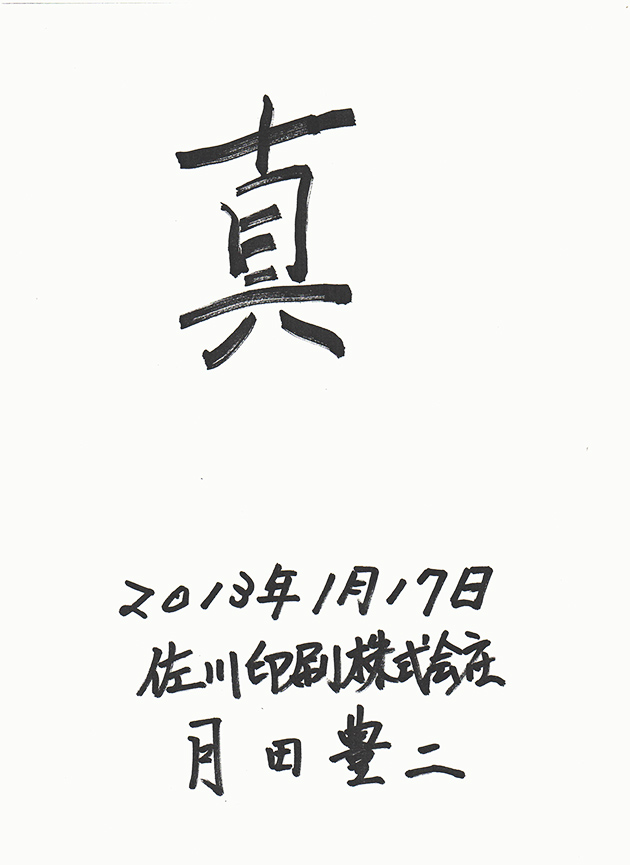 真
2013年1月17日
佐川印刷株式会社
月田豊二